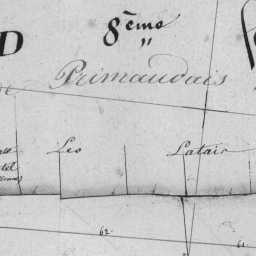 D 8ème
"
Primaudais
Les Latair
62.
61.